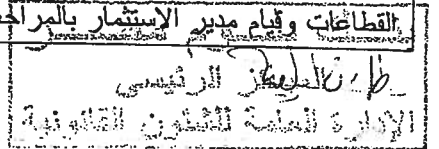 القطاعات وقيام مدير الإستثمار بالمراج
المركز الرئيسي
الإدارة العامة للشئون القانونية